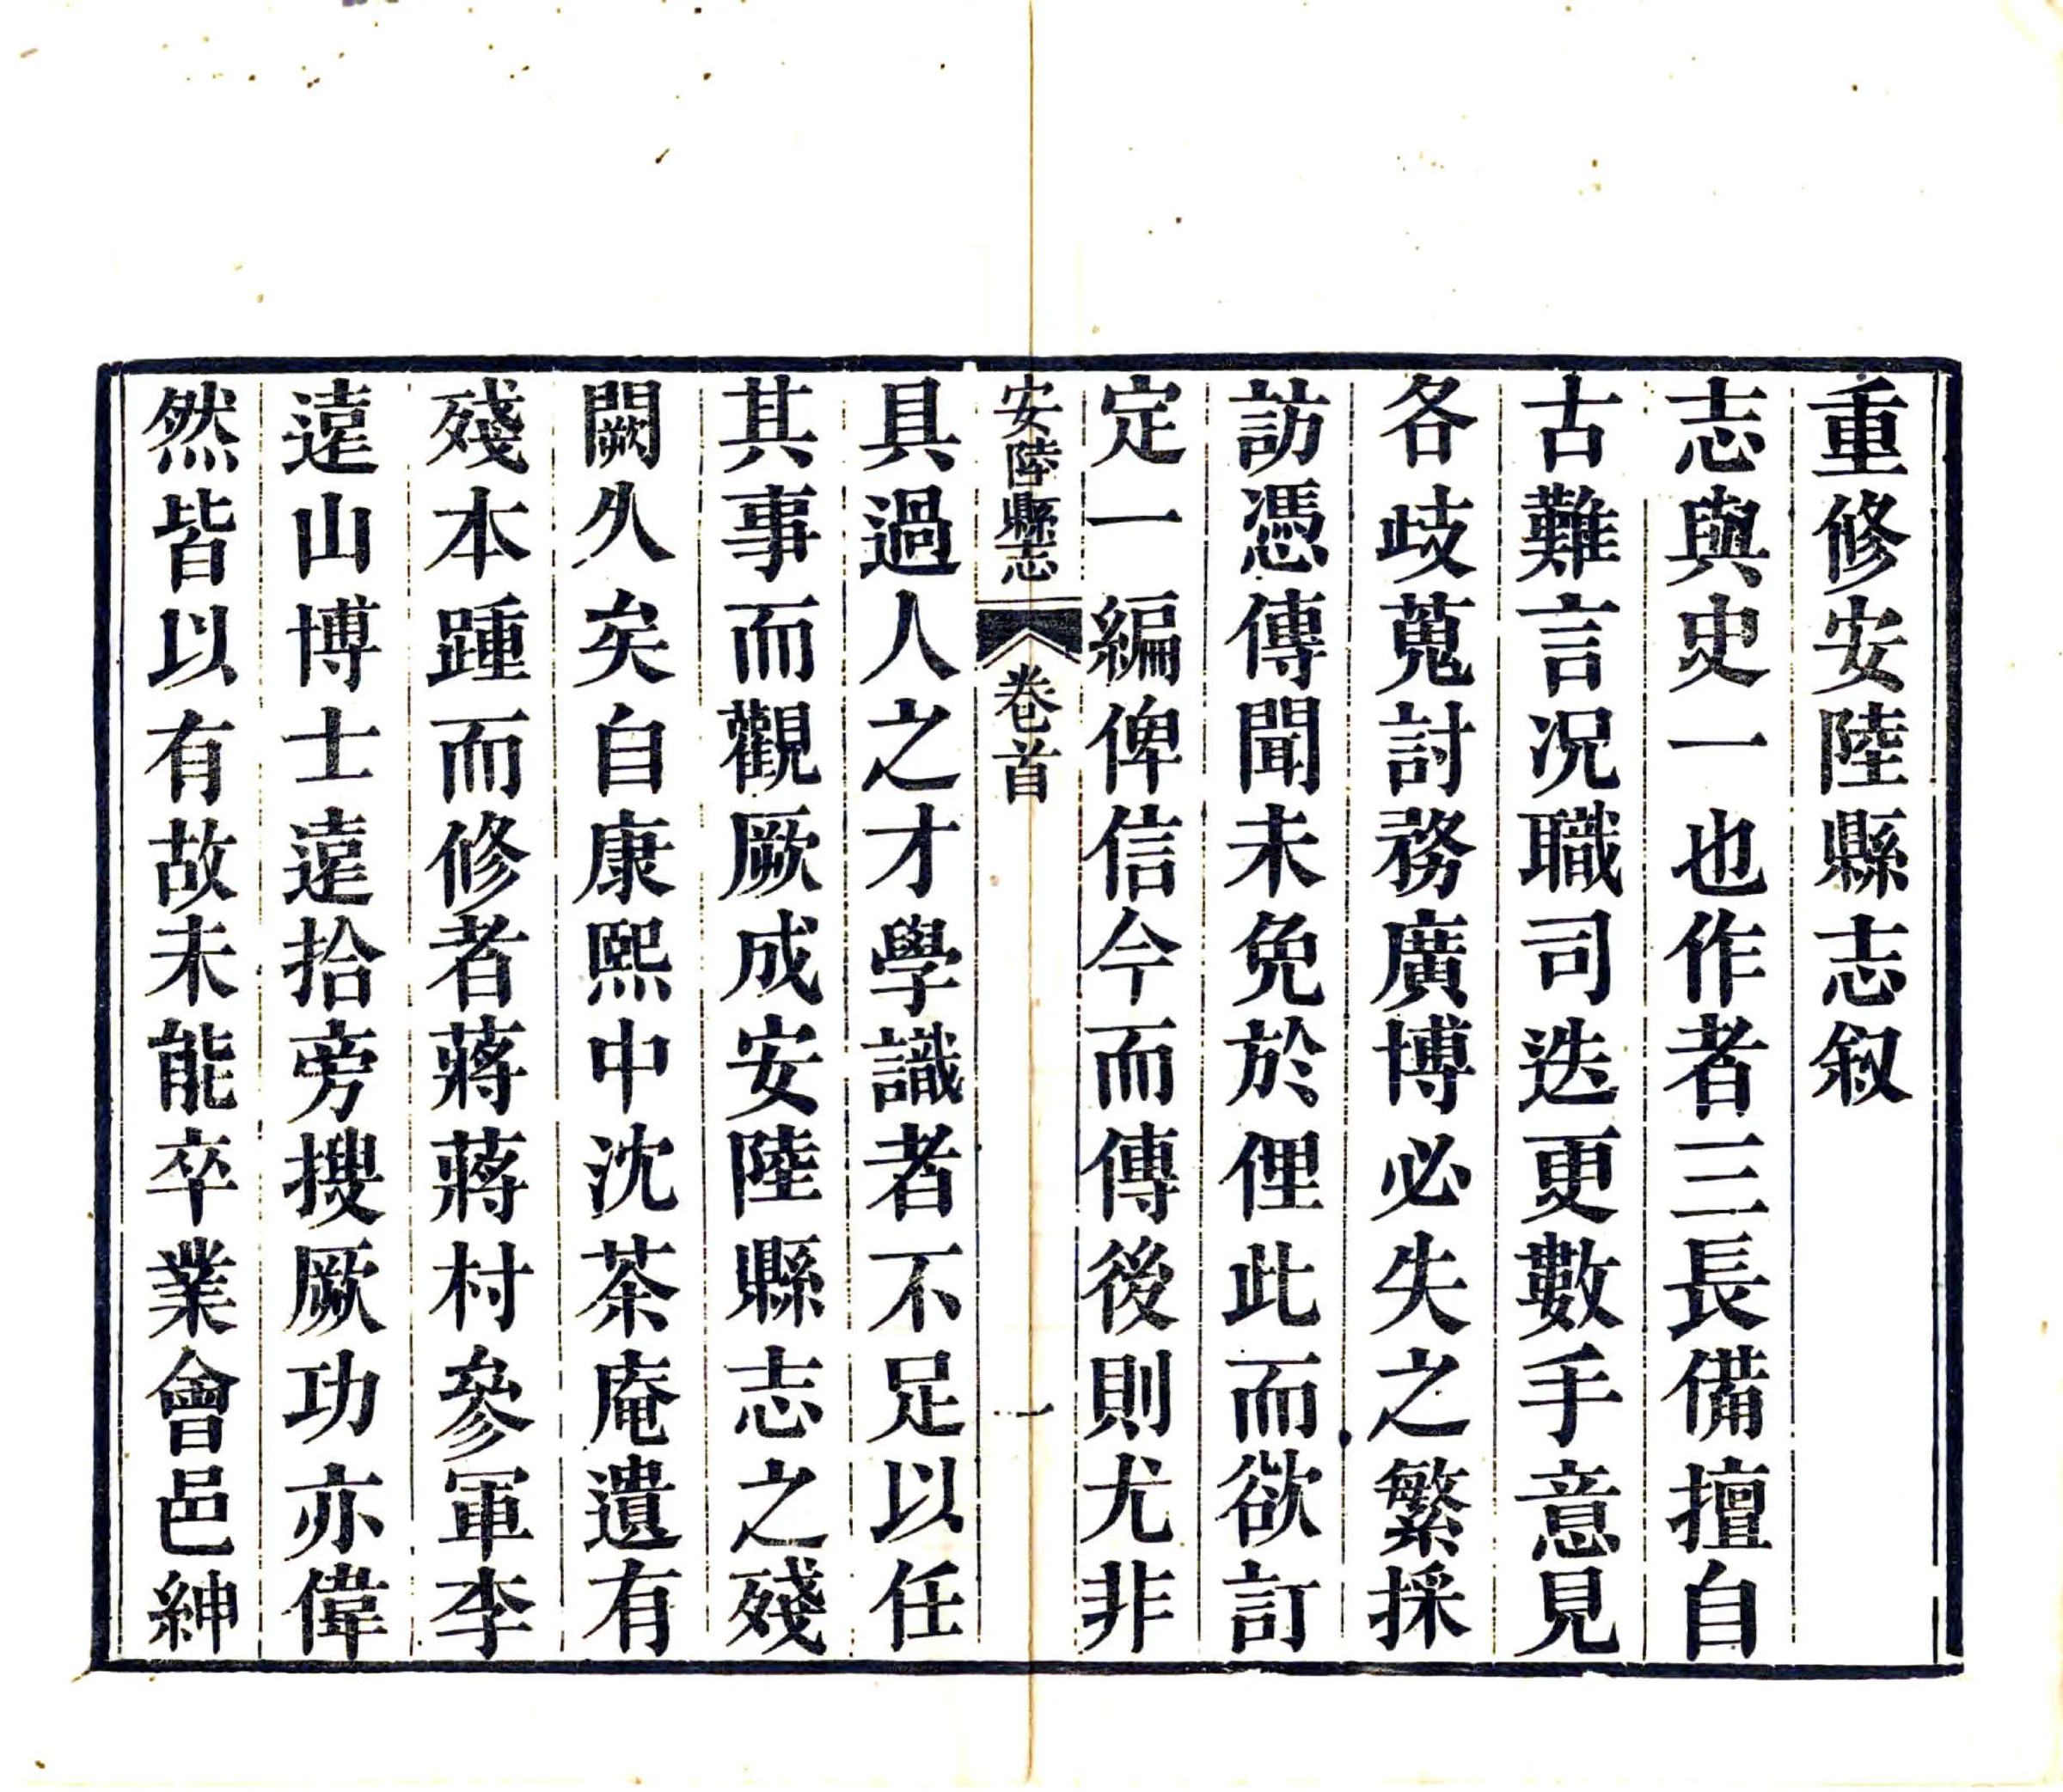 重修安陸縣志叙
志與史一也作者三長備擅自
古難言况職司迭更數手意見
各歧蒐討務廣博必失之繁採
訪憑傳聞未免於俚此而欲訂
定一編俾信今而傳後則尤非
安陸縣志 卷首 一
具過人之才學識者不足以任
其事而觀厥成安陸縣志之殘
闕久矣自康熙中沈茶庵遺有
殘本踵而修者蔣蔣村參軍李
遠山博士遠拾旁搜厥功亦偉
然皆以有故未能卒業會邑紳